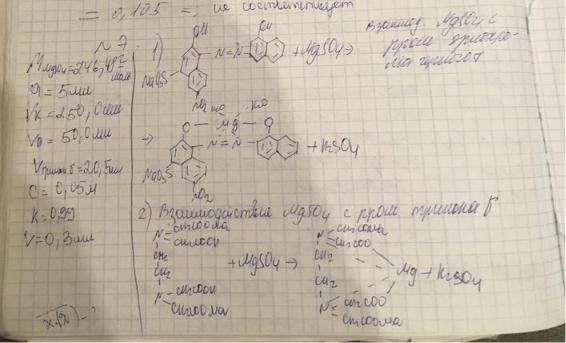 = 0,105 =; не соответствует
~ 7
1)
OH
OH
- N = N -
+ MgSO4 →
Взаимод. MgSO4 с
NaO3S
NO2
M = 246,48 г/моль
V = 5 мл
Vк = 250,0 мл
V0 = 50,0 мл
V трилон Б = 20,5 мл
C = 0,05 М
K = 0,99
V = 0,3 мл
→
O — Mg — O
- N = N -
NaO3S
NO2
+ H2SO4
2) Взаимодействие MgSO4 с р-ром трилона Б
N
CH2COONa
CH2COOH
CH2
CH2
N
CH2COOH
CH2COONa
+ MgSO4 →
N
CH2COONa
CH2COO
CH2
CH2
N
CH2COO
CH2COONa
Mg + H2SO4